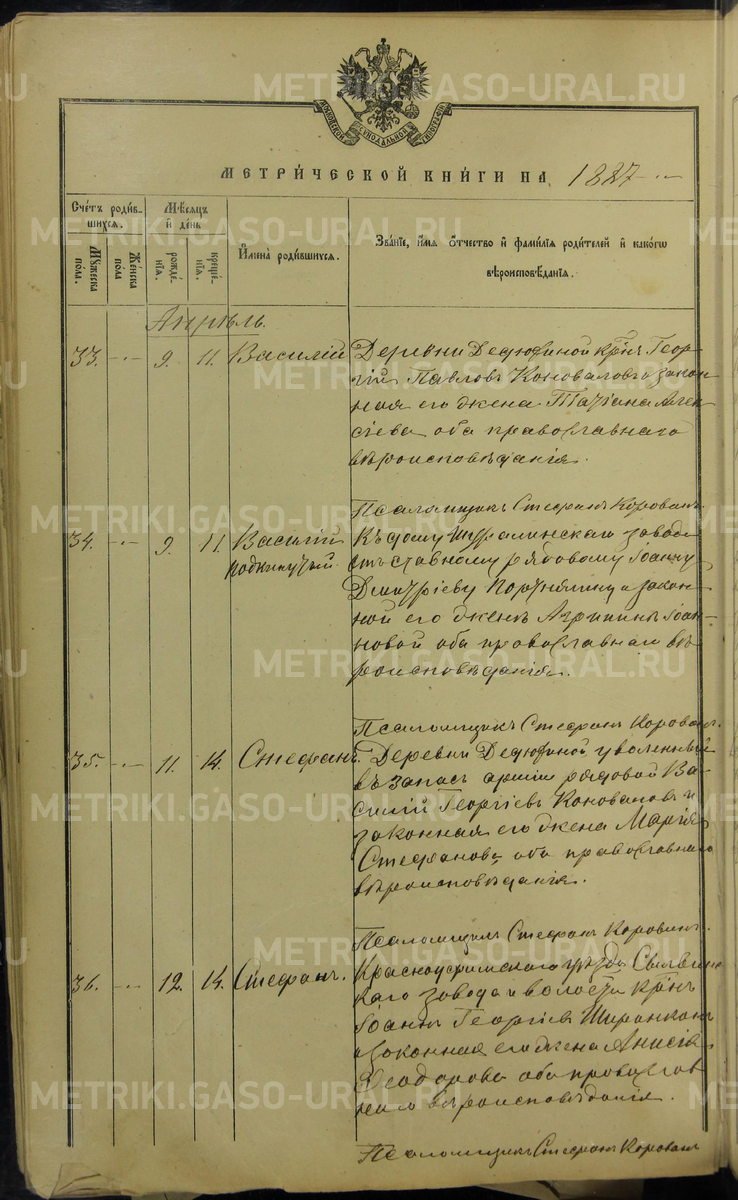 МЕТРИЧЕСКОЙ КНИГИ НА 1887
Счетъ родившихся.
Мужеска пола.
Женска пола
Мѣсяцъ и день
рожденія.
крещенія.
Имена родившихся.
Званіе, имя отчество и фамилія родителей и какого
вѣроисповѣданія.
Апрѣль.
33. 9. 11. Василій
Деревни Дедюхиной крнъ Геор-
гій Павловъ Коноваловъ и закон-
ная его жена Татіана Алек-
сіева оба православнаго
вѣроисповѣданія.
Псаломщикъ Стефанъ
34. 9. 11. Василій
подкинутый.
Къ дому завода
рядовому Іоанну
Дмитріеву и закон-
ной его женѣ Агрипинѣ Іоан-
новой оба православнаго вѣ-
роисповѣданія.
Псаломщикъ Стефанъ
35. 11. 14. Стефанъ
Деревни Дедюхиной уволенный
въ запасъ арміи рядовой Ва-
силій Георгіевъ Коноваловъ и
законная его жена Марія
Стефанова оба православнаго
вѣроисповѣданія.
Псаломщикъ Стефанъ
36. 12. 14. Стефанъ.
Красноуфимскаго уѣзда
завода и волости крнъ
Іоаннъ Георгіевъ
и законная его жена Анисія
Феодорова оба православ-
наго вѣроисповѣданія.
Псаломщикъ Стефанъ
METRIKI.GASO-URAL.RU